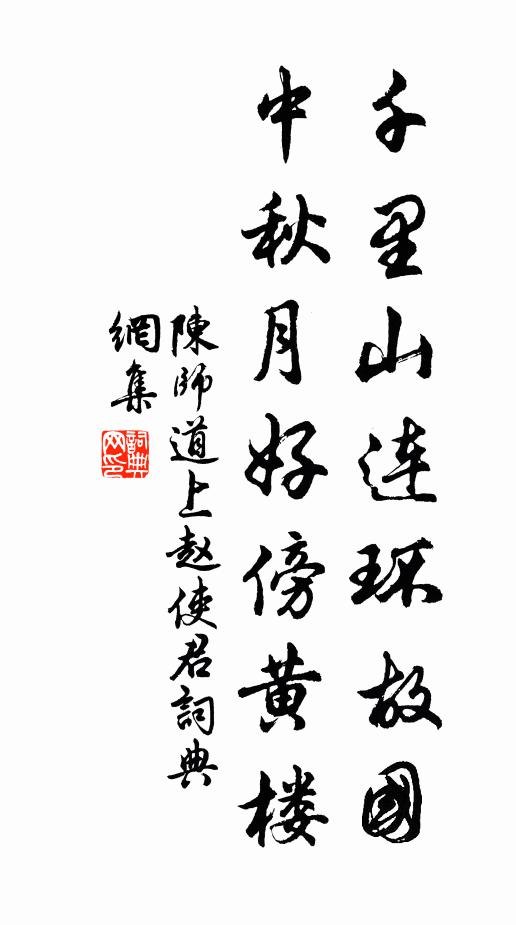 千里山连环故國
中秋月好傍黄楼
陳師道上赵使君詞典
網集
詞典
网印